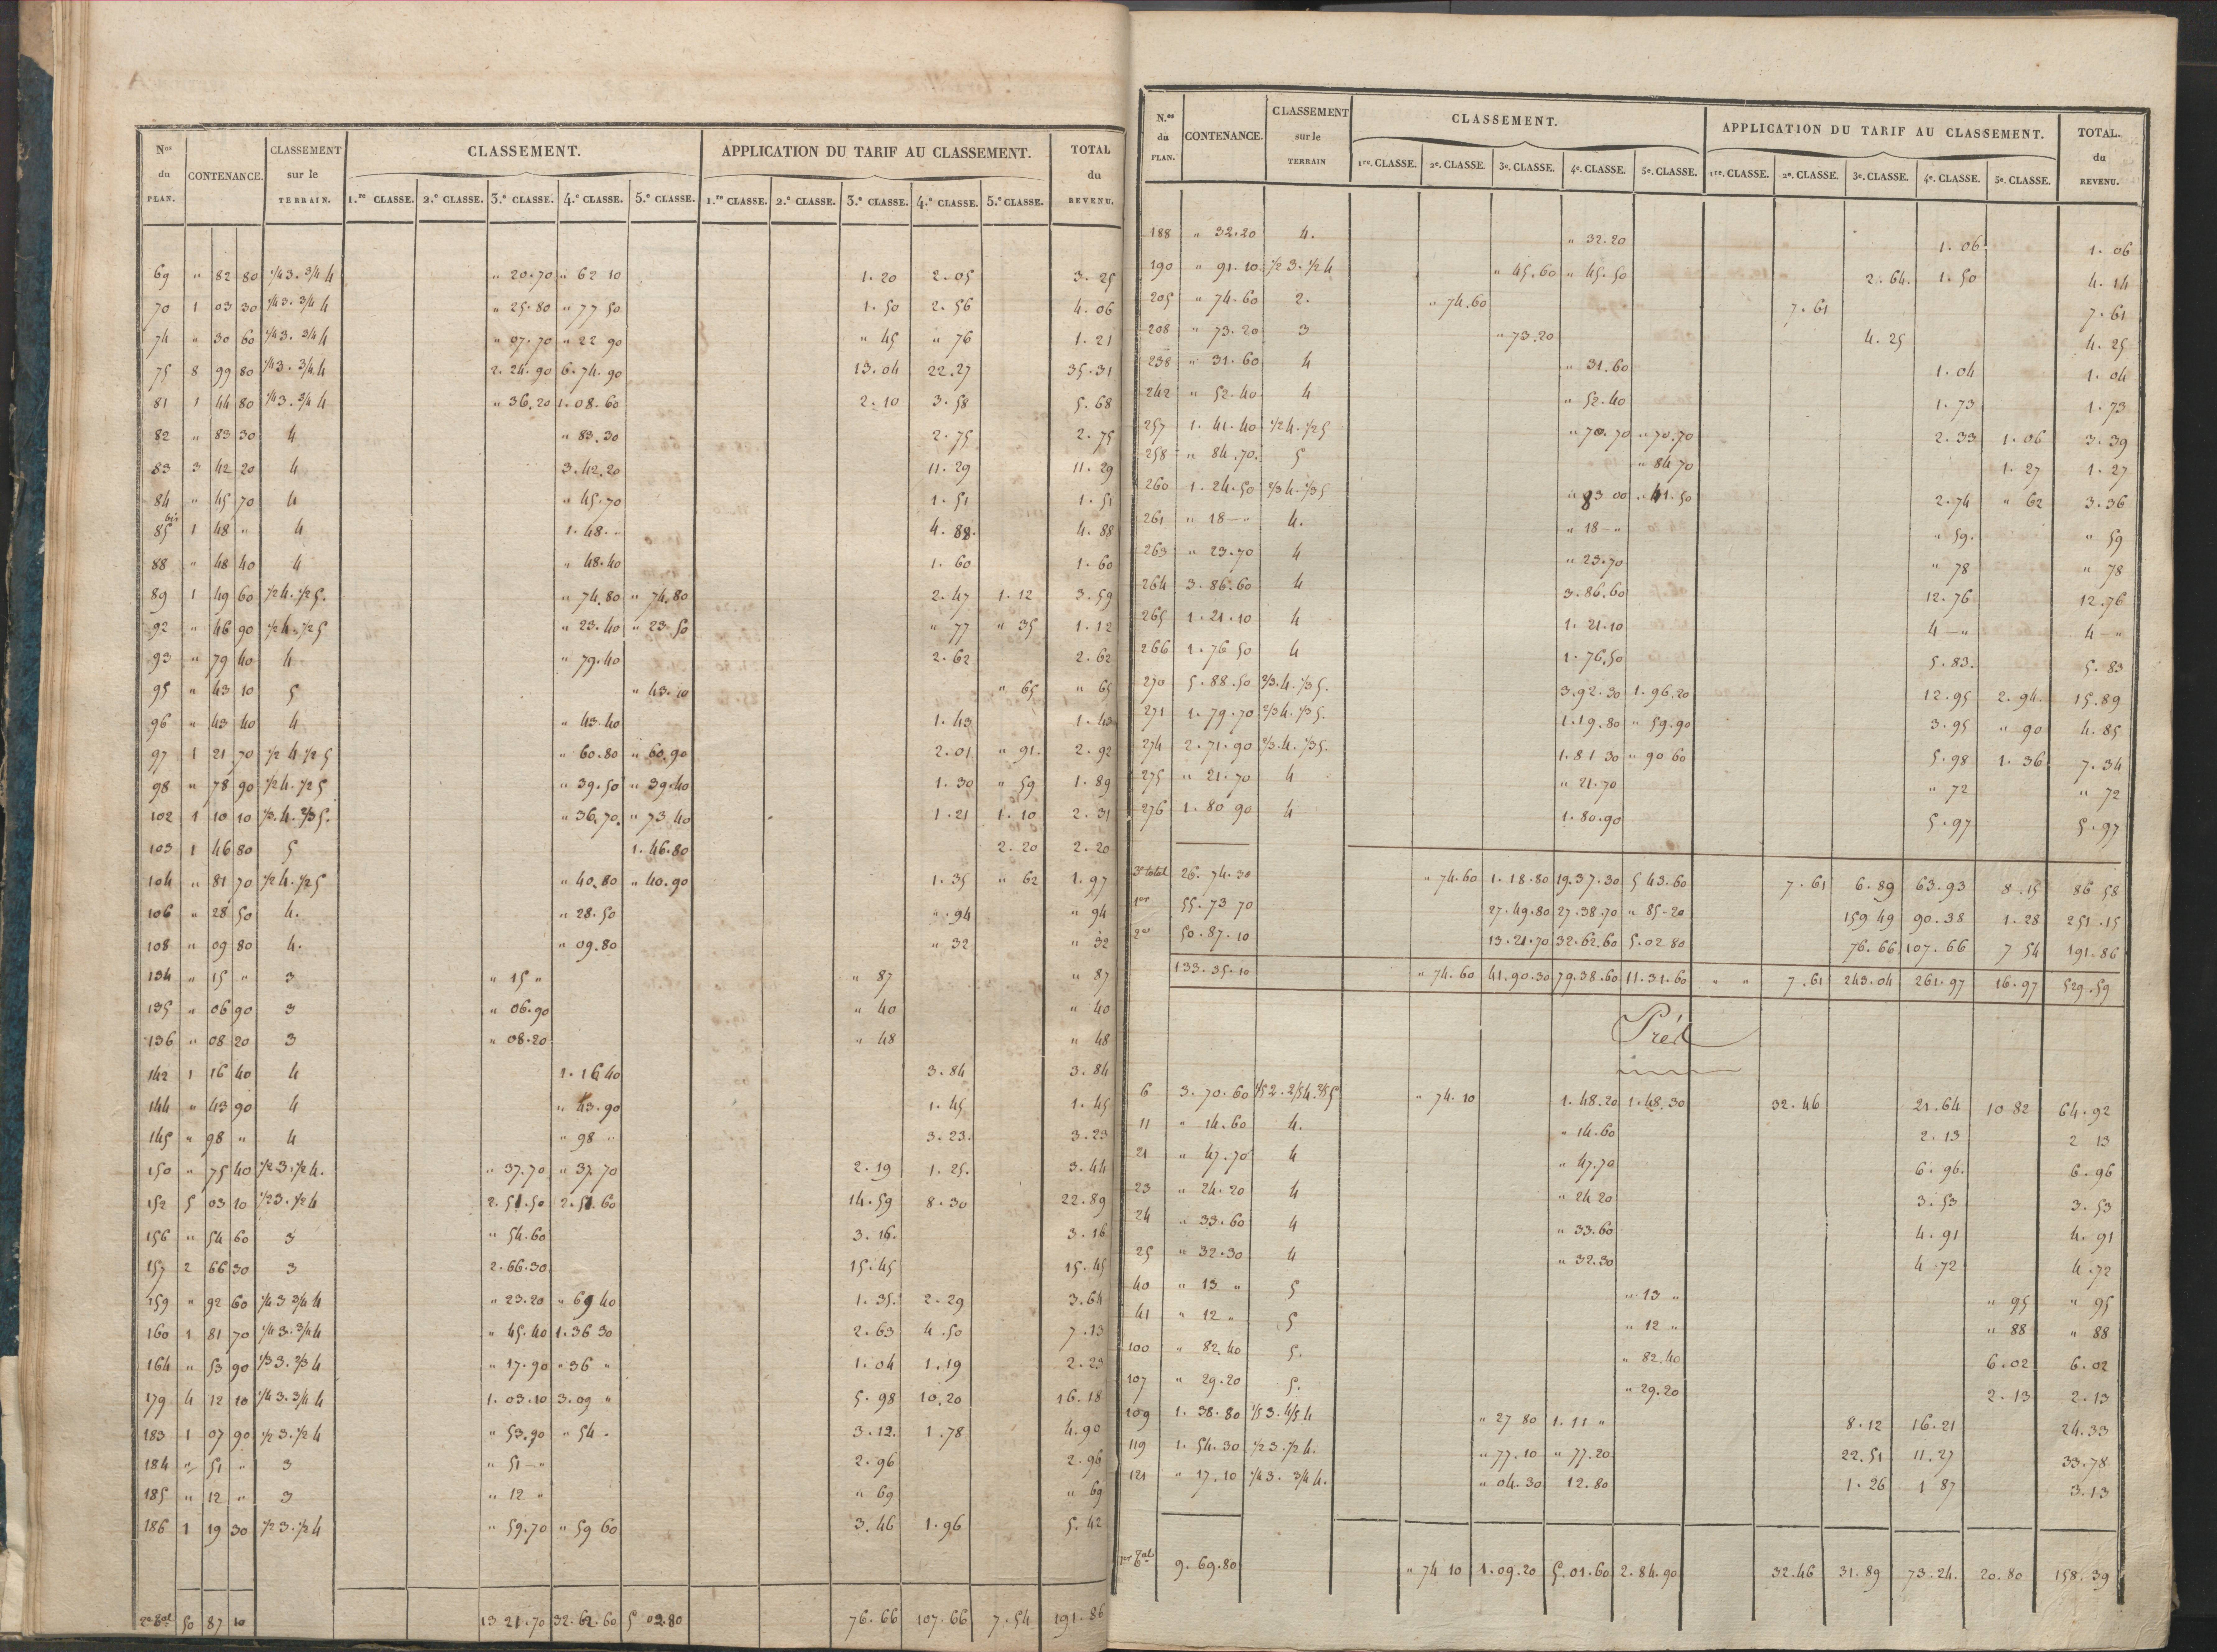 Nos du PLAN. CONTENANCE. CLASSEMENT sur le TERRAIN. CLASSEMENT. APPLICATION DU TARIF AU CLASSEMENT. TOTAL du REVENU.
1.re CLASSE. 2.e CLASSE. 3.e CLASSE. 4.e CLASSE. 5.e CLASSE. 1.re CLASSE. 2.e CLASSE. 3.e CLASSE. 4.e CLASSE. 5.e CLASSE.
69 " 82 80 1/4 3. 3/4 4 " 20.70 " 62 10 1.20 2.05 3.25
70 1 03 30 1/4 3. 3/4 4 " 25.80 " 77 50 1.50 2.56 4.06
74 " 30 60 1/4 3. 3/4 4 " 07.70 " 22 90 " 45 " 76 1.21
75 8 99 80 1/4 3. 3/4 4 2.24.90 6.74.90 13.04 22.27 35.31
81 1 44 80 1/4 3. 3/4 4 " 36.20 1.08.60 2.10 3.58 5.68
82 " 83 30 4 " 83.30 2.75 2.75
83 3 42 20 4 3.42.20 11.29 11.29
84 " 45 70 4 " 45.70 1.51 1.51
85 bis 1 48 " 4 1.48." 4.88. 4.88
88 " 48 40 4 " 48.40 1.60 1.60
89 1 49 60 1/2 4. 1/2 5. " 74.80 " 74.80 2.47 1.12 3.59
92 " 46 90 1/2 4. 1/2 5 " 23.40 " 23.50 " 77 " 35 1.12
93 " 79 40 4 " 79.40 2.62 2.62
95 " 43 10 5 " 43.10 " 65 " 65
96 " 43 40 4 " 43.40 1.43 1.43
97 1 21 70 1/2 4 1/2 5 " 60.80 " 60.90 2.01 " 91. 2.92
98 " 78 90 1/2 4. 1/2 5 " 39.50 " 39.40 1.30 " 59 1.89
102 1 10 10 1/3. 4. 2/3 5. " 36.70. " 73.40 1.21 1.10 2.31
103 1 46 80 5 1.46.80 2.20 2.20
104 " 81 70 1/2 4. 1/2 5 " 40.80 " 40.90 1.35 " 62 1.97
106 " 28 50 4. " 28.50 " .94 " 94
108 " 09 80 4. " 09.80 " 32 " 32
134 " 15 " 3 " 15 " " 87 " 87
135 " 06 90 3 " 06.90 " 40 " 40
136 " 08 20 3 " 08.20 " 48 " 48
142 1 16 40 4 1.16 40 3.84 3.84
144 " 43 90 4 " 43.90 1.45 1.45
145 " 98 " 4 " 98 " 3.23. 3.23
150 " 75 40 1/2 3. 1/2 4. " 37.70 " 37.70 2.19 1.25. 3.44
152 5 03 10 1/2 3. 1/2 4 2.51.50 2.51.60 14.59 8.30 22.89
156 " 54 60 3 " 54.60 3.16. 3.16
157 2 66 30 3 2.66.30 15.45 15.45
159 " 92 60 1/4 3 3/4 4 " 23.20 " 69 40 1.35. 2.29 3.64
160 1 81 70 1/4 3. 3/4 4 " 45.40 1.36 30 2.63 4.50 7.13
164 " 53 90 1/3 3. 2/3 4 " 17.90 " 36 " 1.04 1.19 2.23
179 4 12 10 1/4 3. 3/4 4 1.03.10 3.09 " 5.98 10.20 16.18
183 1 07 90 1/2 3. 1/2 4 " 53.90 " 54 " 3.12. 1.78 4.90
184 " 51 " 3 " 51 — " 2.96 2.96
185 " 12 " 3 " 12 " " 69 " 69
186 1 19 30 1/2 3. 1/2 4 " 59.70 " 59 60 3.46 1.96 5.42
50 87 10 13 21.70 32.62.60 5 02.80 76.66 107.66 7.54 191.86
N.os du PLAN. CONTENANCE. CLASSEMENT sur le TERRAIN CLASSEMENT. APPLICATION DU TARIF AU CLASSEMENT. TOTAL. du REVENU.
1re. CLASSE. 2e. CLASSE. 3e. CLASSE. 4e. CLASSE. 5e. CLASSE. 1re. CLASSE. 2e. CLASSE. 3e. CLASSE. 4e. CLASSE. 5e. CLASSE.
188 " 32.20 4. " 32.20 1.06 1.06
190 " 91.10 1/2 3. 1/2 4 " 45.60 " 45.50 2.64. 1.50 4.14
205 " 74.60 2. " 74.60 7.61 7.61
208 " 73.20 3 " 73.20 4.25 4.25
238 " 31.60 4 " 31.60 1.04 1.04
242 " 52.40 4 " 52.40 1.73 1.73
257 1.41.40 1/2 4. 1/2 5 " 70.70 " 70.70 2.33 1.06 3.39
258 " 84.70. 5 " 84 70 1.27 1.27
260 1.24.50 2/3 4. 1/3 5 " 83 00 " 41.50 2.74 " 62 3.36
261 " 18 — " 4. " 18 — " " 59. " 59
263 " 23.70 4 " 23.70 " 78 " 78
264 3.86.60 4 3.86.60 12.76 12.76
265 1.21.10 4 1.21.10 4 — " 4 — "
266 1.76 50 4 1.76.50 5.83. 5.83
270 5.88.50 2/3. 4. 1/3 5. 3.92.30 1.96.20 12.95 2.94. 15.89
271 1.79.70 2/3 4. 1/3 5. 1.19.80 " 59.90 3.95 " 90 4.85
274 2.71.90 2/3. 4. 1/3 5. 1.81 30 " 90 60 5.98 1.36 7.34
275 " 21.70 4 " 21.70 " 72 " 72
276 1.80 90 4 1.80.90 5.97 5.97
3e total 26.74.30 " 74.60 1.18.80 19.37.30 5 43.60 7.61 6.89 63.93 8.15 86 58
1er 55.73 70 27.49.80 27.38.70 " 85.20 159 49 90.38 1.28 251.15
50.87.10 13.21.70 32.62.60 5.02 80 76.66 107.66 7 54 191.86
133.35.10 " 74.60 41.90.30 79.38.60 11.31.60 " " 7.61 243.04 261.97 16.97 529.59
Prés
6 3.70.60 1/5 2. 2/5 4. 2/5 5 " 74.10 1.48.20 1.48.30 32.46 21.64 10 82 64.92
11 " 14.60 4. " 14.60 2.13 2 13
21 " 47.70 4 " 47.70 6.96. 6.96
23 " 24.20 4 " 24 20 3.53 3.53
24 " 33.60 4 " 33.60 4.91 4.91
25 " 32.30 4 " 32.30 4 72 4.72
40 " 13 " 5 " 13 " " 95 " 95
41 " 12 " 5 " 12 " " 88 " 88
100 " 82.40 5. " 82.40 6.02 6.02
107 " 29.20 5. " 29.20 2.13 2.13
109 1.38.80 1/5 3. 4/5 4 " 27 80 1.11 " 8.12 16.21 24.33
119 1.54.30 1/2 3. 1/2 4. " 77.10 " 77.20 22.51 11.27 33.78
121 " 17.10 1/4 3. 3/4 4. " 04.30 12.80 1.26 1 87 3.13
9.69.80 " 74 10 1.09.20 5.01.60 2.84.90 32.46 31.89 73.24. 20.80 158.39